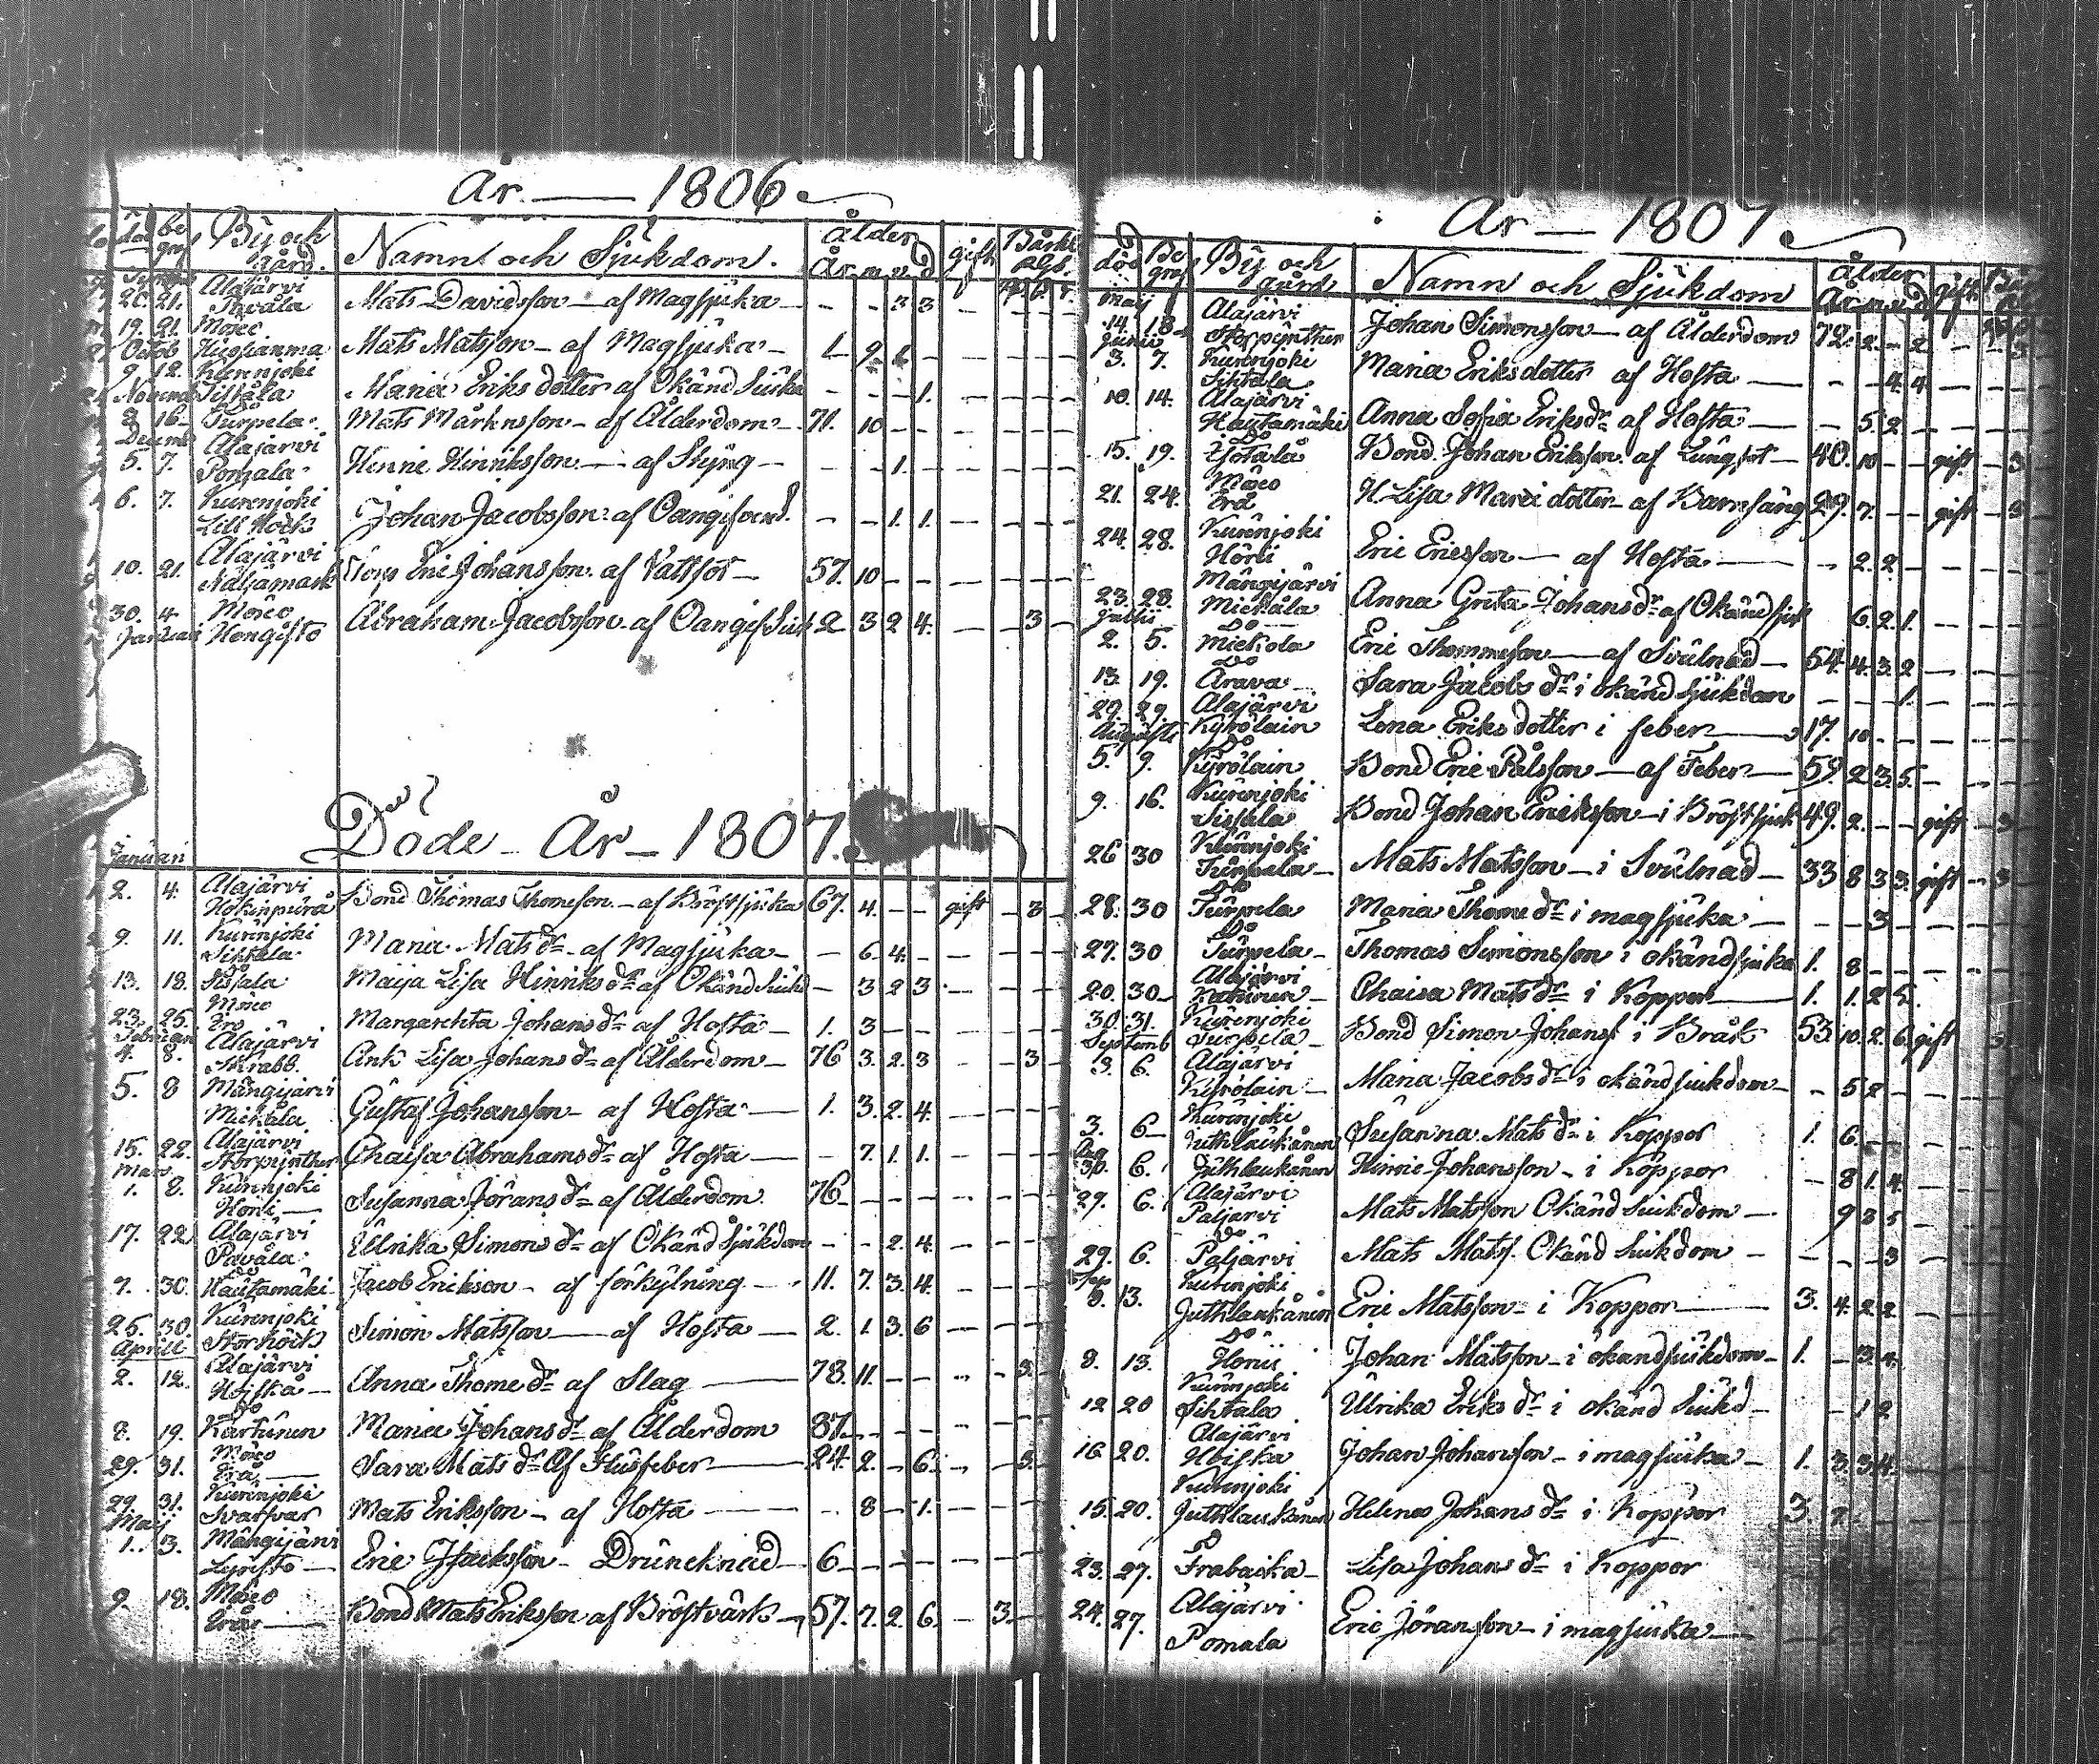 År — 1806
död be graf By och Gård. Namn och Sjukdom. Ålder År. m. v. d gift
Alajärvi
20. 21. Pavåla Mats Davidsson — af Magsjuka — - - 2 3
19. 21. Möséc
Octob Mats Matsson — af Magsjuka — 1 9
9. 12. Kurenjoki
Novemb Maria Eriks dotter af Okänd Siuka - - - 1.
3 16. Turpela Mats Mårtensson — af Ålderdom — 71. 10
Decemb Alajärvi
5. 7. Pomala Henric Henriksson — af Styng — - - 1.
6. 7. Kurenjoki
Lill Höck Johan Jacobsson af Oangifvend. - - 1. 1.
Alajärvi
10. 21. Eric Johansson af Vattsot — 57. 10
30. 4 Möseo Abraham Jacobsson af Oangif Siuk 2 3 2 4. 3
Januari Hongisto
Döde — År — 1807.
Januari
2. 4. Alajärvi
Bond Thomas Thomsson — af Bröstsjuka 67. 4. gift 3
9. 11. Kurenjoki
Sihtala Maria Mats dr af Magsjuka — 6 4.
13. 18. Do
Sissala Maija Lisa Hinriks dr af Okänd Siukd — 3 2 3
Möseo
23. 25. Ero Margarehta Johans dr af Hosta — 1. 3
Februari Alajärvi
4. 8. Krabb. Ank Lisa Johans dr af Ålderdom — 76 3. 2. 3 3
5. 8 Mängijärvi
Mickåla Gustaf Johansson — af Hosta — 1. 3. 2. 4.
Alajärvi
15. 22. Storpynther Chaisa Abrahams dr af Hosta — 7. 1. 1.
Mars
1. 8. Kurenjoki
Höni — Susanna Jörans dr af Ålderdom 76
17. 22 Alajärvi
Pavåla Ullrika Simons dr af Okänd Sjukdom - - 2. 4.
7. 30. Do
Hautamäki Jacob Erikson — af förkylning — 11. 7. 3. 4.
Kurenjoki
25. 30. Storhöck Simon Matsson — af Hosta — 2. 1 3. 6
Aprill Alajärvi
2. 12. Anna Thome dr af Slag — 78. 11. 3.
Do
8. 19. Karhunen Maria Johans dr af Ålderdom 87
Möseo
29. 31. Erä — Sara Mats dr Af Husfeber — 24. 2. - 6. 3.
Kurenjoki
29. 31. Svarfvar Mats Eriksson — af Hosta — 8 - 1.
Maij
1. 3. Mängijärvi
Eric Isacksson — Druncknad — 6
9. 18. Möseo
Bond Mats Eriksson af Bröstvärk — 57. 7. 2. 6. 3
År — 1807
död Be graf By och gård Namn och Sjukdom Ålder År m. v. d gift
Maij Alajärvi
14. 18 Storpynther Johan Simonsson — af Ålderdom 72. 2. - 2. 3
Junii
3. 7. Kurenjoki
Sihtala Maria Eriks dotter af Hosta — - - 4. 4.
10. 14. Alajärvi
Hautamäki Anna Sofia Eriks dr af Hosta — 5. 2
Do
15. 19. Bond. Johan Eriksson af Lungsot — 40. 10 gift 3
Möseo
21. 24. Erä H Lisa Matsdotter — af Barnsäng 29. 7. gift 3
24. 28. Kurenjoki
Eric Ericsson — af Hosta — 2. 2.
Mängijärvi
23. 28. Mickåla Anna Greta Johans dr af Okänd sjuk 6. 2. 1.
Julii
Do
2. 5. Mickola Eric Thommsson — af Svulnad — 54. 4. 3. 2
Do
13. 19. Arava Sara Jacobs dr i okänd sjukdom - - - 1.
Alajärvi
20. 29. Kyrölain Lena Eriks dotter i feber — 17. 10
Augusti
Do
5. 9. Kyrölain Bond Eric Pålsson — af Feber — 59. 2 3 5
Kurenjoki
9. 16. Sissala Bond Johan Eriksson — i Bröstsjuk 49. 2. gift 3
26 30 Kurenjoki
Turpela — Mats Matsson — i Svulnad — 33 8 3 3. gift 3
Do
28. 30 Turpela Maria Thome dr i magsjuka — - - 3
Do
27. 30 Turpela — Thomas Simonsson i okänd sjuka 1. 8
Alajärvi
20. 30 Chaisa Mats dr i Koppor — 1. 1. 2 5.
Kurenjoki
30. 31. Turpela — Bond Simon Johanss i Bråk 53. 10. 2. 6. gift 3
Septemb
3. 6. Alajärvi
Kyrölain — Maria Jacobs dr i okänd siukdom — 5 2
Kurenjoki
3. 6 Juthlaukånen Susanna Mats dr i Koppor 1. 6.
Aug
30. 6. Juthlaukånen Hinric Johansson — i Koppor — 8 1. 4.
Alajärvi
29. 6. Paljärvi Mats Matsson Okänd Siukdom — 9 3 5
Do
29. 6. Paljärvi Mats Matss. Okänd Siukdom — - - 3
Sep Kurenjoki
8. 13. Juthlaukånen Eric Matsson — i Koppor — 3. 4. 2 2
Do
8. 13. Johan Matsson — i okänd sjukdom — 1. - 3. 4.
Kurenjoki
12 20 Sihtala Ullrika Eriks dr i okänd Siukd — - 1 2
Alajärvi
16 20. Höiska Johan Johansson — i magsjuka — 1. 3. 3. 4.
Kurenjoki
15. 20. Juthlaukånen Helena Johans dr i Koppor 3. 7.
Do
23. 27. Frabacka — Lisa Johans dr i Koppor
24. 27. Alajärvi
Pomala Eric Jöransson — i magsjuka —